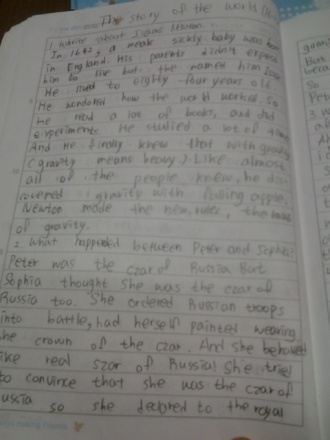 The story of the world
1. Write about Isaac Newton.
In 1642, a weak sickly baby was born
in England. His parents didn't expect
him to live but the named him Isaac
He lived to eighty-four years old.
He wondered how the world worked so
he read a lot of books, and did
experiments. He studied a lot of time
And he finally knew that with gravity
(gravity means heavy). Like almost
all of the people knew, he dis-
covered gravity with falling apple.
Newton made the new rules, the
of gravity.
2. what happended between Peter and Sophia
Peter was the czar of Russia But
Sophia thought she was the czar of
Russia too. She ordered Russian troops
into battle, had herself painted wearing
the crown of the czar. And she behaved
like real szar of Russia! She tried
to convince that she was the czar of
ussia so she declared to the royal